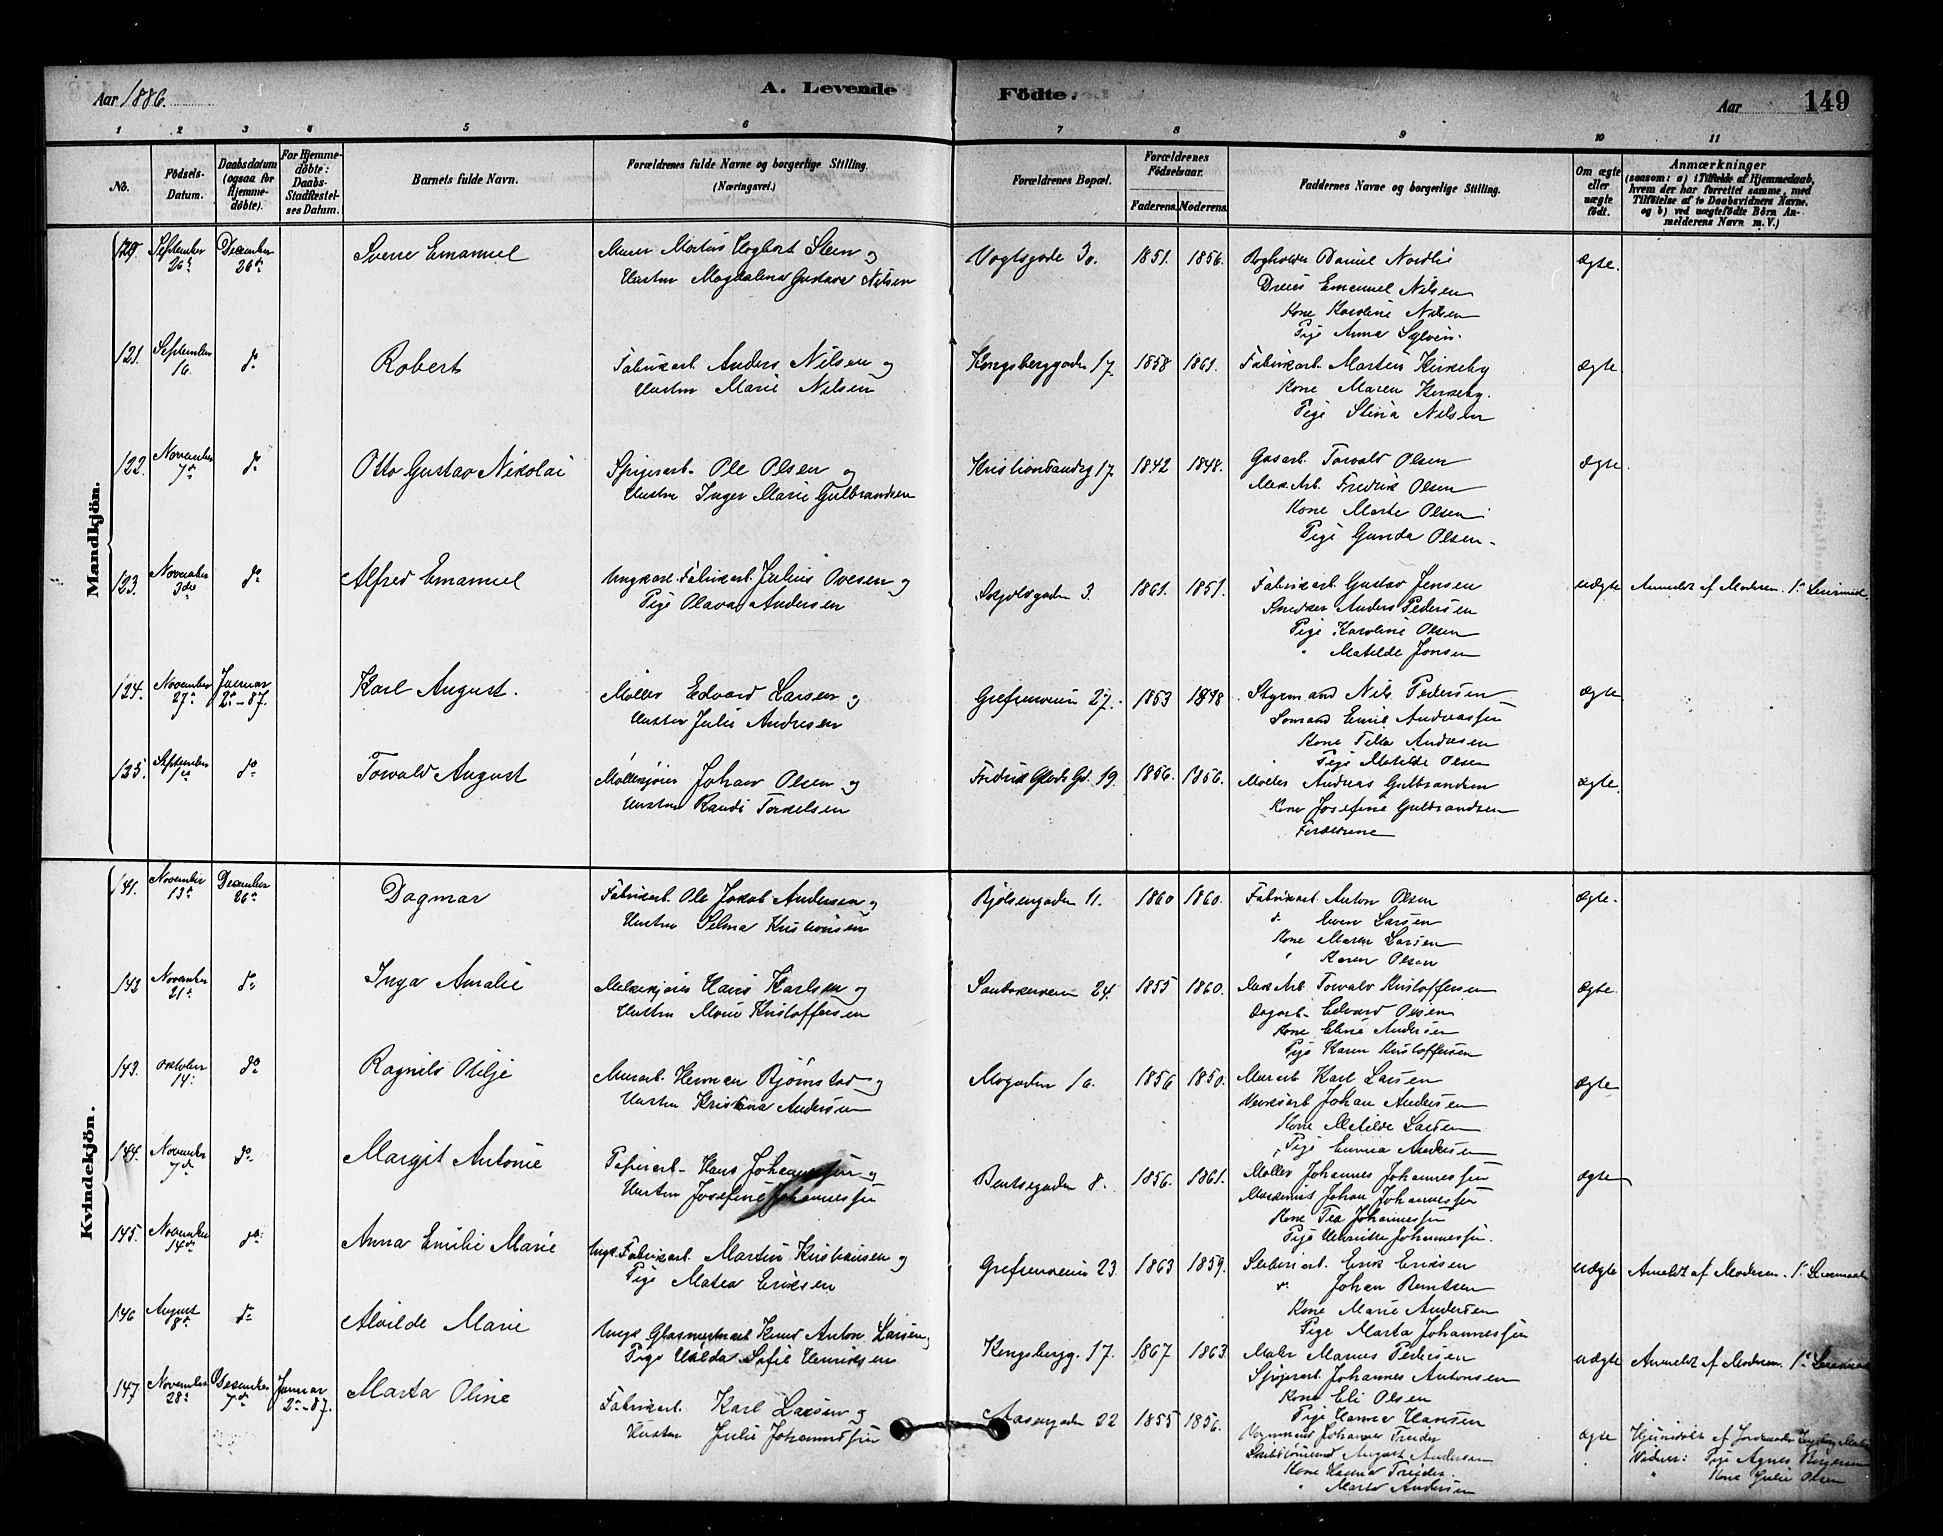 Aar 1886.
A. Levende Födte.
Aar
149
1 2 3 4 5 6 7 8 9 10 11
No.
Födsels-Datum.
Daabsdatum (ogsaa for Hjemme-döbte).
For Hjemme-döbte: Daabs-Stadfæstel-ses Datum.
Barnets fulde Navn.
Forældrenes fulde Navne og borgerlige Stilling. (Næringsvei.)
Forældrenes Bopæl.
Forældrenes Födselsaar.
Faderens. Moderens.
Faddernes Navne og borgerlige Stilling.
Om ægte eller uægte födt.
Anmærkninger (saasom: a) i Tilfælde af Hjemmedaab, hvem der har forrettet samme, med Tilföielse af to Daabsvidners Navne. og b) ved uægtefödte Börn An-melderens Navn m. V.)
Mandkjön.
September 26de December 26de Sverre Emanuel Murer Martin Hogbert Steen og Vogtsgade 30. 1851. 1856. Bogholder Daniel Nordli ægte.
Hustru Magdalena Gustava Nilsen Dreier Emanuel Nilsen
Kone Karoline Nilsen
Pige Anna Sylvin.
121. September 16. do Robert Fabrikarb. Anders Nilsen og Kongsberggaden 17. 1858 1861. Fabrikarb. Martin Kirkeby ægte
Hustru Marie Nilsen Kone Maren Kirkeby.
Pige Stina Nilsen
122. November 7de do Otto Gustav Nikolai Spigerarb. Ole Olsen og Kristiansandsg 17. 1842 1848. Gasarb. Torvald Olsen ægte.
Hustru Inger Marie Gulbrandsen Mek. Arb. Fredrik Olsen
Kone Marte Olsen
Pige Gunda Olsen.
123. November 3die do Alfred Emanuel Ungkarl Fabrikarb. Julius Ovesen og Skjoldsgaden 3. 1861. 1851. Fabrikarb. Gustav Jensen uægte Anmeldt af Moderen. 1ste Leiermaal
Pige Olava Andersen Snedker Anders Pedersen
Pige Karoline Olsen
" Matilde Jonsen
124. November 27de Januar 2den - 87. Karl August. Møller Edvard Larsen og Grefsenveien 27. 1853 1848 Styrmand Nils Pedersen ægte
Hustru Julie Andresen Sømand Emil Andreassen
Kone Andresen
Pige Matilde Olsen
125. September do Torvald August Møllekjører Johan Olsen og Fredrik Glads Gd. 19. 1856. 1856. Møller Andreas Gulbrandsen ægte.
Hustru Randi Torkelsen Kone Josefine Gulbrandsen
Forældrene
Kvindekjön.
141. November 13de December 26de Dagmar Fabrikarb. Ole Jakob Andersen og Bjølsengaden 11. 1860 1860. Fabrikarb. Anton Olsen ægte.
Hustru Selma Kristiansen do Even Larsen
Kone Maren Larsen
" Karen Olsen
142 November 21de do Inga Amalie Melkekjører Hans Karlsen og Sandakerveien 24. 1855 1860. Mek Arb. Torvald Kristoffersen ægte
Hustru Marie Kristoffersen Dagarb. Edvard Olsen
Kone Eline Andersen
Pige Karen Kristoffersen
143. Oktober 14. do Ragnild Otilje Murarb. Herman Bjørnstad og Mogaden 1856 1850. Murarb Karl Larsen ægte
Hustru Kristina Andersen Verksarb Johan Andersen
Kone Matilde Larsen
Pige Emma Andersen
144. November 7de do Margit Antonie Papirarb. Hans Johannessen og Bentsegaden 8. 1856. 1861. Møller Johannes Johannessen ægte
Hustru Josefine Johannessen Maskinist Johan Johannessen
Kone Tea Johannessen
Pige Henriette Johannessen.
145. November 14de do Anna Emilie Marie Ungk. Fabrikarb. Martin Kristiansen og Grefsenveien 23. 1863 1859. Støberiarb. Erik Eriksen uægte Anmeldt af Moderen. 1ste Leiermaal
Pige Matea Eriksen do Johan Berntsen
Kone Marie Andersen
Pige Marta Johannessen
146 August 8de do Alvilde Marie Ungk Glasmesterarb Knud Anton Larsen og Kongsbergg. 17. 1867 1863. Maler Pedersen uægte Anmeldt af Moderen. 1ste Leiermaal
Pige Hulda Sofie Henriksen Spigerarb. Johannes Antonsen
Kone Eli Olsen
Pige Hanna Hansen
147. November 28de December 7de Januar 2den - 87. Marta Oline Fabrikarb. Karl Larsen og Aasengaden 22 1855 1856. Vognmand Johannes ægte Hjemmedøbt af Jordmoder
Hustru Julie Johannessen Skibstømmermd August Andersen Vidner: Pige Agnes Borgersen
Kone Hanna " Kone Julie Olsen
" Marta Andersen